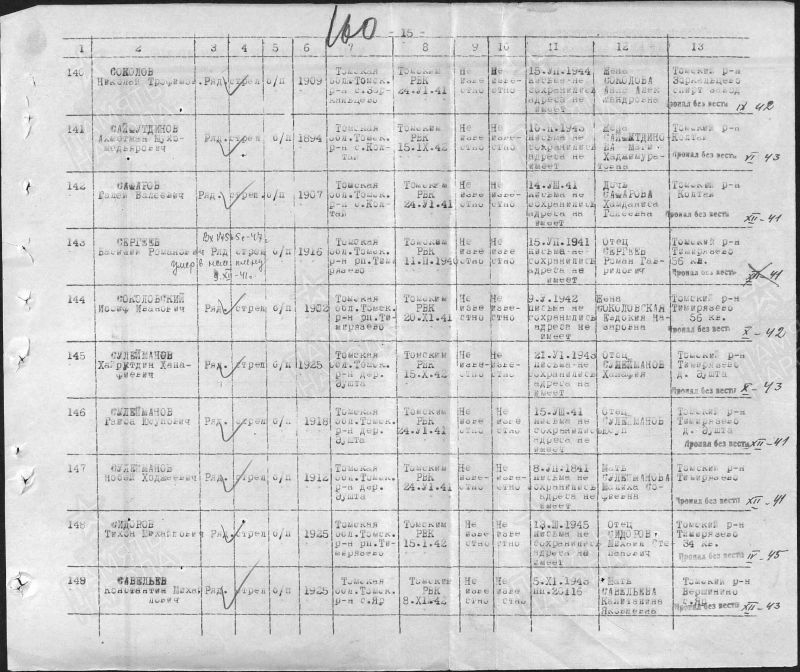 160
- 15 -
1 2 3 4 5 6 7 8 9 10 11 12 13
140 СОКОЛОВ Николай Трофимов. Ряд. стрел б/п 1909 Томская обл.Томск. р-н с.Зор-кальцево Томским РВК 24.У1.41 Не изве-стно Не изве-стно 15.УП.1944 письма не сохранились адреса не имеет Жена СОКОЛОВА Анна Алек сандровна Томский р-н Зоркальцево спирт завод
Пропал без вести IX 42
141 САЙФУТДИНОВ Ряд. стрел б/п 1894 Томская обл.Томск. р-н с.Кол-тай Томским РВК 15.IX.42 Не изве-стно Не изве-стно письма не сохранились адреса не имеет Жена Томский р-н Колтай
Пропал без вести VI 43
142 САФАРОВ Валеевич Ряд. стрел. б/п 1907 Томская обл.Томск. р-н с.Кол-тай Томским РВК 24.У1.41 Не изве-стно Не изве-стно 14.УШ.41 письма не сохранились адреса не имеет Дочь САФАРОВА Томский р-н Колтай
Пропал без вести XII-41
143 СЕРГЕЕВ Василий Романович Ряд стрел б/п 1916 Томская обл.Томск. р-н рп.Тими рязево Томским РВК 11.П.1940 Не изве-стно Не изве-стно 15.УП.1941 письма не сохранились адреса не имеет Отец СЕРГЕЕВ Роман Гав-рилович Томский р-н Тимирязево 56 кв.
умер в
9.XII-41г.
Пропал без вести XII-41
144 СОКОЛОВСКИЙ Иосиф Иванович Ряд. стрел б/п 1902 Томская обл.Томск. р-н рп.Ти-мирязево Томским РВК 20.XI.41 Не изве стно Не изве-стно 9.У.1942 письма не сохранились адреса не имеет Жена СОКОЛОВСКАЯ Евдокия На-заровна Томский р-н Тимирязево 56 кв.
Пропал без вести X-42
145 СУЛЕЙМАНОВ Хайрутдин Хана-фиевич Ряд. стрел. б/п 1925 Томская обл.Томск. р-н дер. Эушта Томским РВК 15.X.42 Не изве-стно Не изве-стно 21.У1.1943 письма-не сохранились адреса не имеет Отец СУЛЕЙМАНОВ Ханафия Томский р-н Тимирязево д. Эушта
Пропал без вести X-43
146 СУЛЕЙМАНОВ Ряд. стрел б/п 1918 Томская обл.Томск. р-н дер. Эушта Томским РВК 24.У1.41 Не изве-стно Не изве-стно 15.УШ.41 письма не сохранились адреса не имеет Отец СУЛЕЙМАНОВ Томский р-н Тимирязево д. Эушта
Пропал без вести XII-41
147 СУЛЕЙМАНОВ Ходжеевич Ряд. стрел б/п 1912 Томская обл.Томск. р-н дер. Эушта Томским РВК 24.У1.41 Не изве-стно Не изве-стно 8.УП.1841 письма не сохранились адреса не имеет Мать СУЛЕЙМАНОВА Томский р-н Тимирязево
Пропал без вести XII-41
148 СИДОРОВ Тихон Михайлович Ряд. стрел б/п 1925 Томская обл.Томск. р-н рп.Ти-мирязево Томским РВК 15.1.42 Не изве-стно Не изве-стно 13.Ш.1945 письма не сохранились адреса не имеет Отец СИДОРОВ Михаил Сте-панович Томский р-н Тимирязево 34 кв.
Пропал без вести IV-45
149 САВЕЛЬЕВ Константин Михай лович Ряд. стрел б/п 1925 Томская обл.Томск. р-н с.Яр Томским РВК 8.XI.42 Не изве-стно Не изве-стно 5.XI.1943 пп.26116 Мать САВЕЛЬЕВА Капитолина Яковлевна Томский р-н Вершинино с.Яр
Пропал без вести XII-43